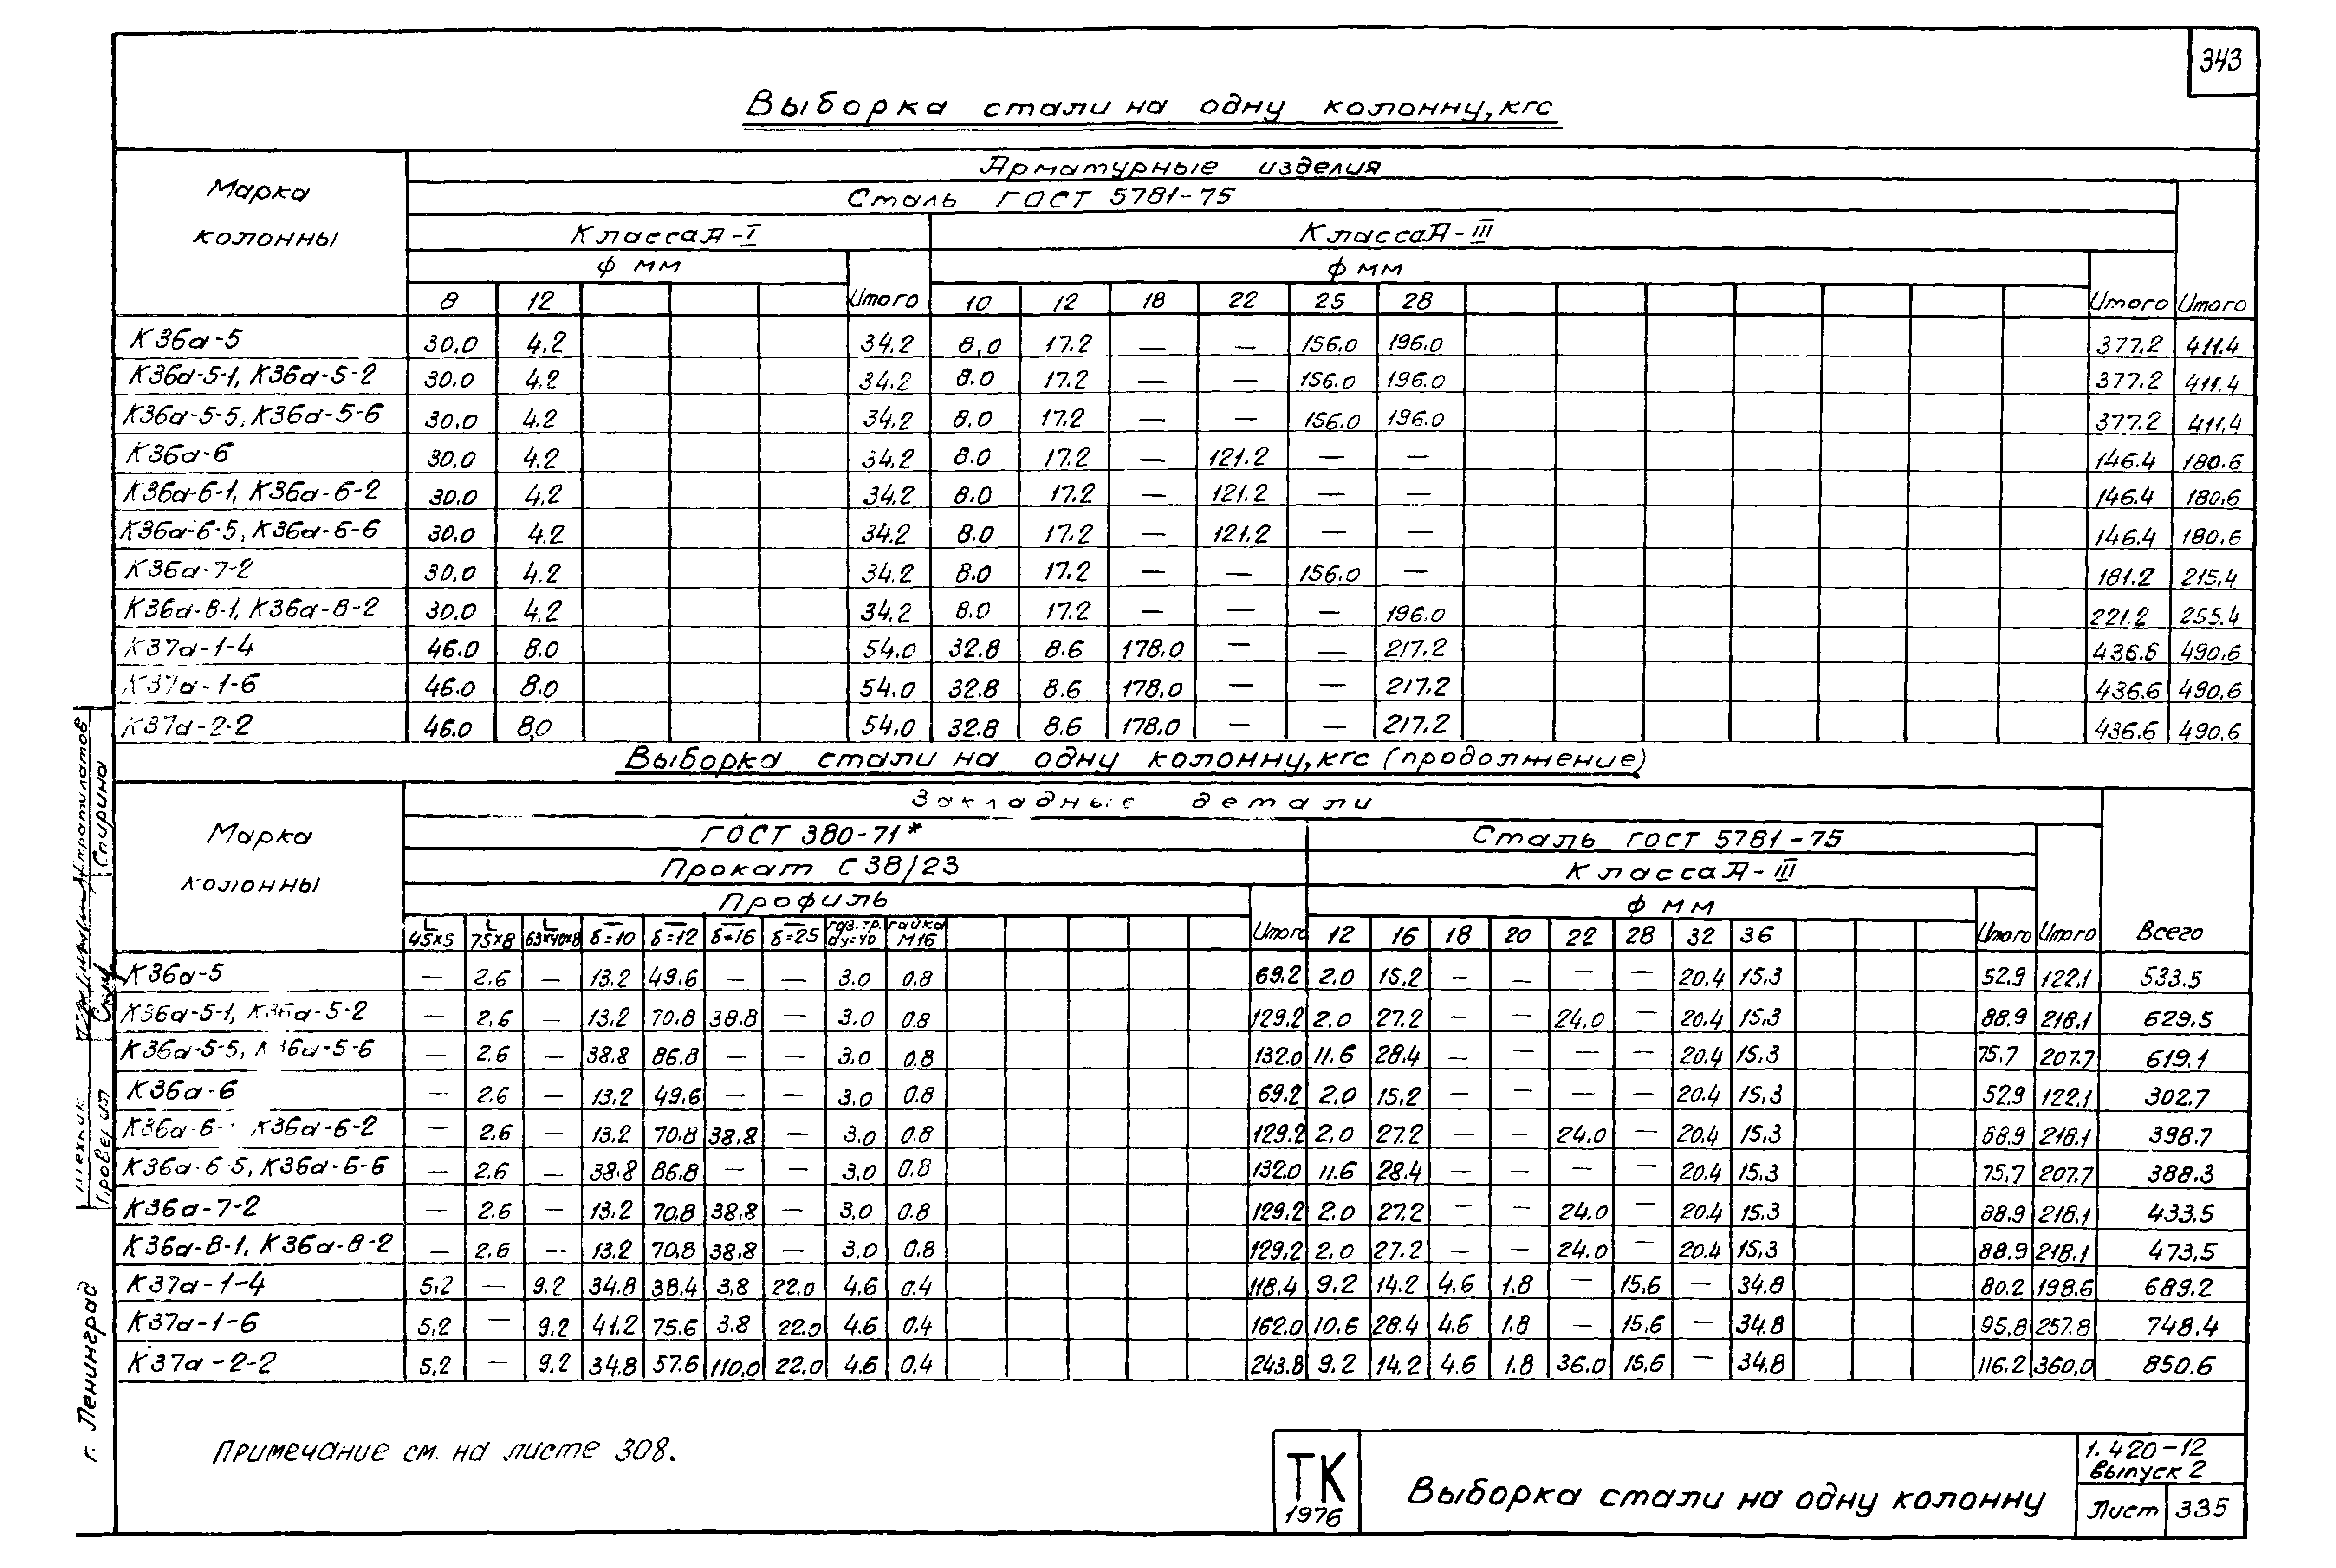 343
Выборка стали на одну колонну, кгс
Марка колонны
Арматурные изделия
Сталь ГОСТ 5781-75
Класса А-I Класса А-III
ф мм ф мм
8 12 Итого 10 12 18 22 25 28 Итого Итого
К36а-5 30.0 4.2 34.2 8.0 17.2 — — 156.0 196.0 377.2 411.4
К36а-5-1, К36а-5-2 30.0 4.2 34.2 8.0 17.2 — — 156.0 196.0 377.2 411.4
К36а-5-5, К36а-5-6 30.0 4.2 34.2 8.0 17.2 — — 156.0 196.0 377.2 411.4
К36а-6 30.0 4.2 34.2 8.0 17.2 — 121.2 — — 146.4 180.6
К36а-6-1, К36а-6-2 30.0 4.2 34.2 8.0 17.2 — 121.2 — — 146.4 180.6
К36а-6-5, К36а-6-6 30.0 4.2 34.2 8.0 17.2 — 121.2 — — 146.4 180.6
К36а-7-2 30.0 4.2 34.2 8.0 17.2 — — 156.0 — 181.2 215.4
К36а-8-1, К36а-8-2 30.0 4.2 34.2 8.0 17.2 — — — 196.0 221.2 255.4
К37а-1-4 46.0 8.0 54.0 32.8 8.6 178.0 — — 217.2 436.6 490.6
К37а-1-6 46.0 8.0 54.0 32.8 8.6 178.0 — — 217.2 436.6 490.6
К37а-2-2 46.0 8.0 54.0 32.8 8.6 178.0 — — 217.2 436.6 490.6
Выборка стали на одну колонну, кгс (продолжение)
Марка колонны
Закладные детали
ГОСТ 380-71* Сталь ГОСТ 5781-75
Прокат С38/23 Класса А-III
Профиль ф мм
L 45×5 L 75×8 L 63×40×8 δ=10 δ=12 δ=16 δ=25 газ.тр. dу=40 гайка М16 Итого 12 16 18 20 22 28 32 36 Итого Итого Всего
К36а-5 — 2.6 — 13.2 49.6 — — 3.0 0.8 69.2 2.0 15.2 — — — — 20.4 15.3 52.9 122.1 533.5
К36а-5-1, К36а-5-2 — 2.6 — 13.2 70.8 38.8 — 3.0 0.8 129.2 2.0 27.2 — — 24.0 — 20.4 15.3 88.9 218.1 629.5
К36а-5-5, К36а-5-6 — 2.6 — 38.8 86.8 — — 3.0 0.8 132.0 11.6 28.4 — — — — 20.4 15.3 75.7 207.7 619.1
К36а-6 — 2.6 — 13.2 49.6 — — 3.0 0.8 69.2 2.0 15.2 — — — — 20.4 15.3 52.9 122.1 302.7
К36а-6- К36а-6-2 — 2.6 — 13.2 70.8 38.8 — 3.0 0.8 129.2 2.0 27.2 — — 24.0 — 20.4 15.3 88.9 218.1 398.7
К36а-6-5, К36а-6-6 — 2.6 — 38.8 86.8 — — 3.0 0.8 132.0 11.6 28.4 — — — — 20.4 15.3 75.7 207.7 388.3
К36а-7-2 — 2.6 — 13.2 70.8 38.8 — 3.0 0.8 129.2 2.0 27.2 — — 24.0 — 20.4 15.3 88.9 218.1 433.5
К36а-8-1, К36а-8-2 — 2.6 — 13.2 70.8 38.8 — 3.0 0.8 129.2 2.0 27.2 — — 24.0 — 20.4 15.3 88.9 218.1 473.5
К37а-1-4 5.2 — 9.2 34.8 38.4 3.8 22.0 4.6 0.4 118.4 9.2 14.2 4.6 1.8 — 15.6 — 34.8 80.2 198.6 689.2
К37а-1-6 5.2 — 9.2 41.2 75.6 3.8 22.0 4.6 0.4 162.0 10.6 28.4 4.6 1.8 — 15.6 — 34.8 95.8 257.8 748.4
К37а-2-2 5.2 — 9.2 34.8 57.6 110.0 22.0 4.6 0.4 243.8 9.2 14.2 4.6 1.8 36.0 15.6 — 34.8 116.2 360.0 850.6
Примечание см. на листе 308.
ТК
1976
Выборка стали на одну колонну
1.420-12
Выпуск 2
Лист 335
г. Ленинград
Спирина